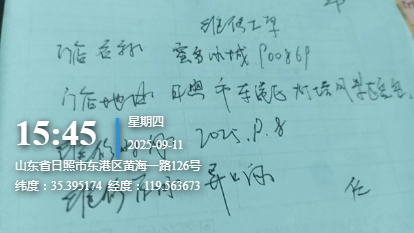 维修工单
门店名称 蜜雪冰城 P00869
门店地址 日照市东港区灯塔风景区
15:45
星期四
2025-09-11
山东省日照市东港区黄海一路126号
纬度:35.395174 经度:119.563673
2025.9.8
维修